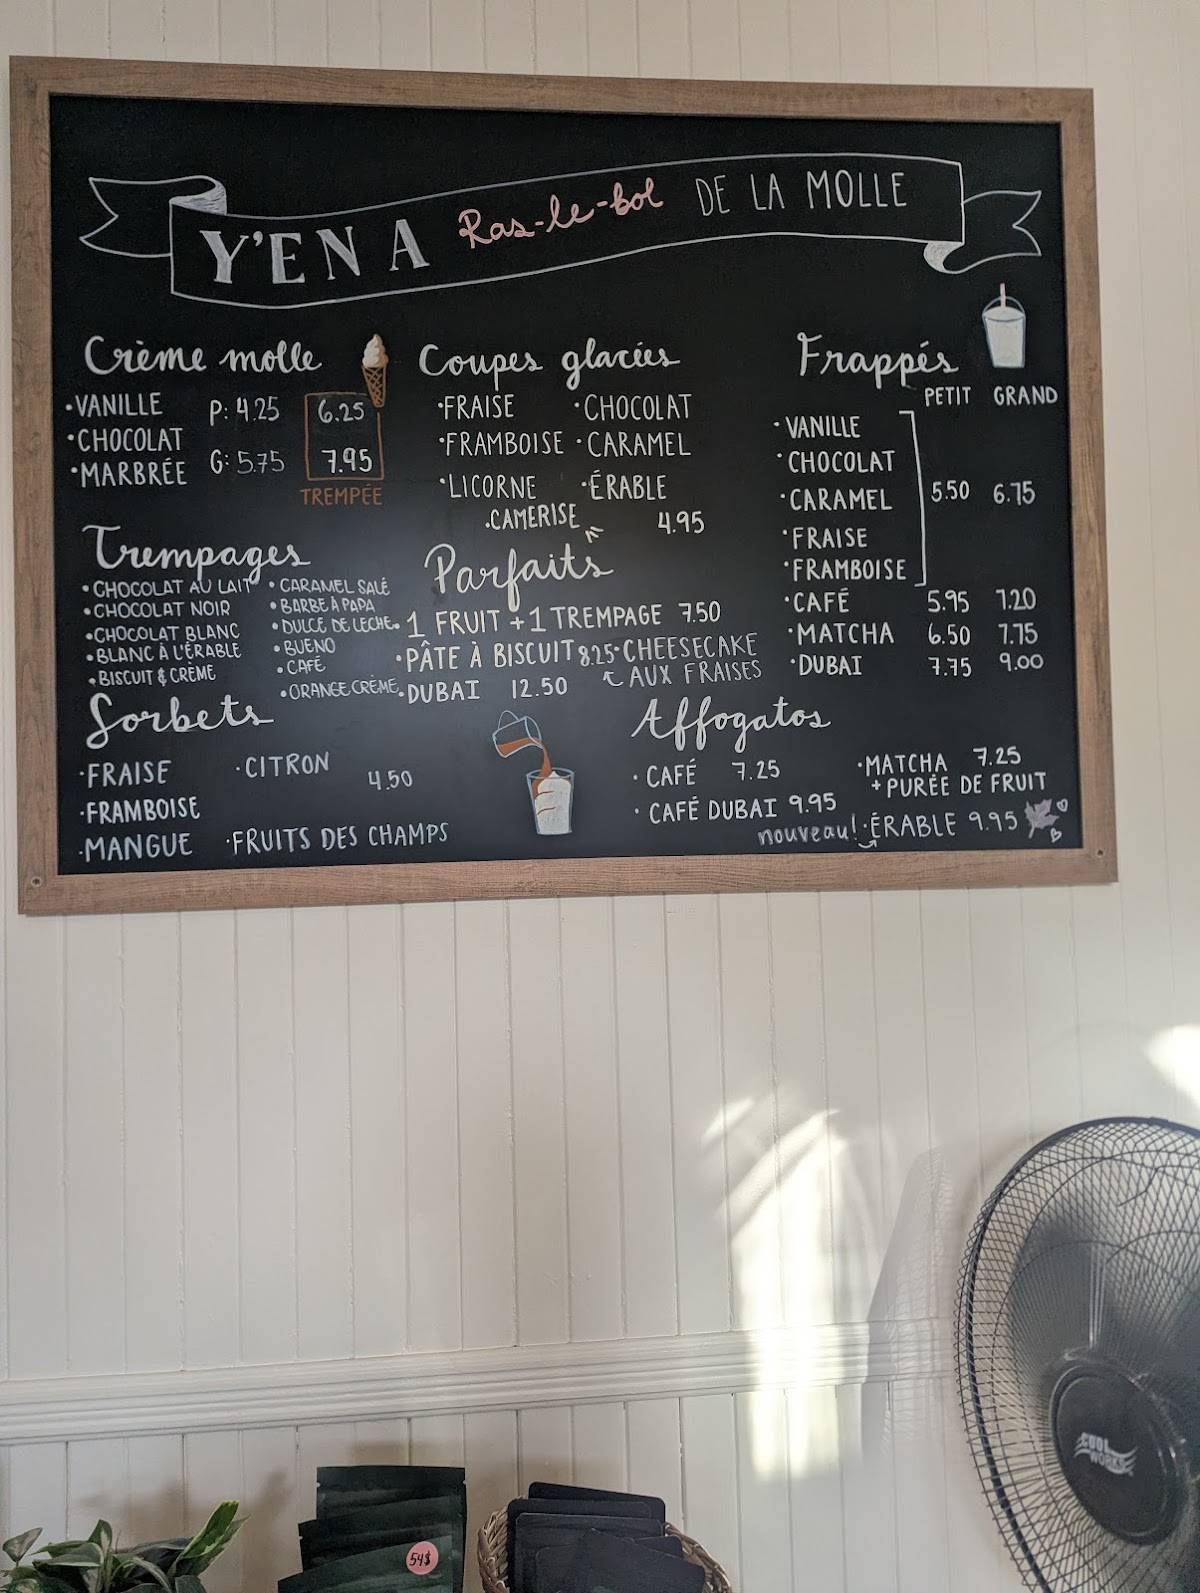 Y'EN A Ras-le-bol DE LA MOLLE
Crème molle
•VANILLE P: 4.25 6.25
•CHOCOLAT
•MARBRÉE G: 5.75 7.95
TREMPÉE
Trempages
•CHOCOLAT AU LAIT •CARAMEL SALÉ
•CHOCOLAT NOIR •BARBE À PAPA
•CHOCOLAT BLANC •DULCE DE LECHE
•BLANC À L'ÉRABLE •BUENO
•BISCUIT & CRÈME •CAFÉ
•ORANGE CRÈME
Sorbets
•FRAISE •CITRON 4.50
•FRAMBOISE
•MANGUE •FRUITS DES CHAMPS
Coupes glacées
•FRAISE •CHOCOLAT
•FRAMBOISE •CARAMEL
•LICORNE •ÉRABLE
•CAMERISE 4.95
Parfaits
•1 FRUIT + 1 TREMPAGE 7.50
•PÂTE À BISCUIT 8.25 •CHEESECAKE
AUX FRAISES
•DUBAI 12.50
Frappés
PETIT GRAND
•VANILLE
•CHOCOLAT
•CARAMEL 5.50 6.75
•FRAISE
•FRAMBOISE
•CAFÉ 5.95 7.20
•MATCHA 6.50 7.75
•DUBAI 7.75 9.00
Affogatos
•CAFÉ 7.25 •MATCHA 7.25
+ PURÉE DE FRUIT
•CAFÉ DUBAI 9.95
nouveau! •ÉRABLE 9.95
COOL
WORKS
54$